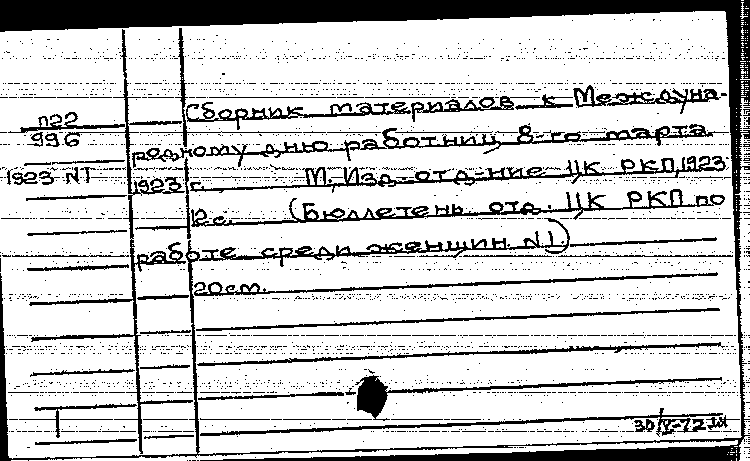 Сборник материалов к Междуна-
п22
996
родному дню работниц 8-го марта
1923 N1
1923 г. М., Изд-отд-ние ЦК РКП, 1923
12с. (Бюллетень отд. ЦК РКП по
работе среди женщин N1)
20см.
1